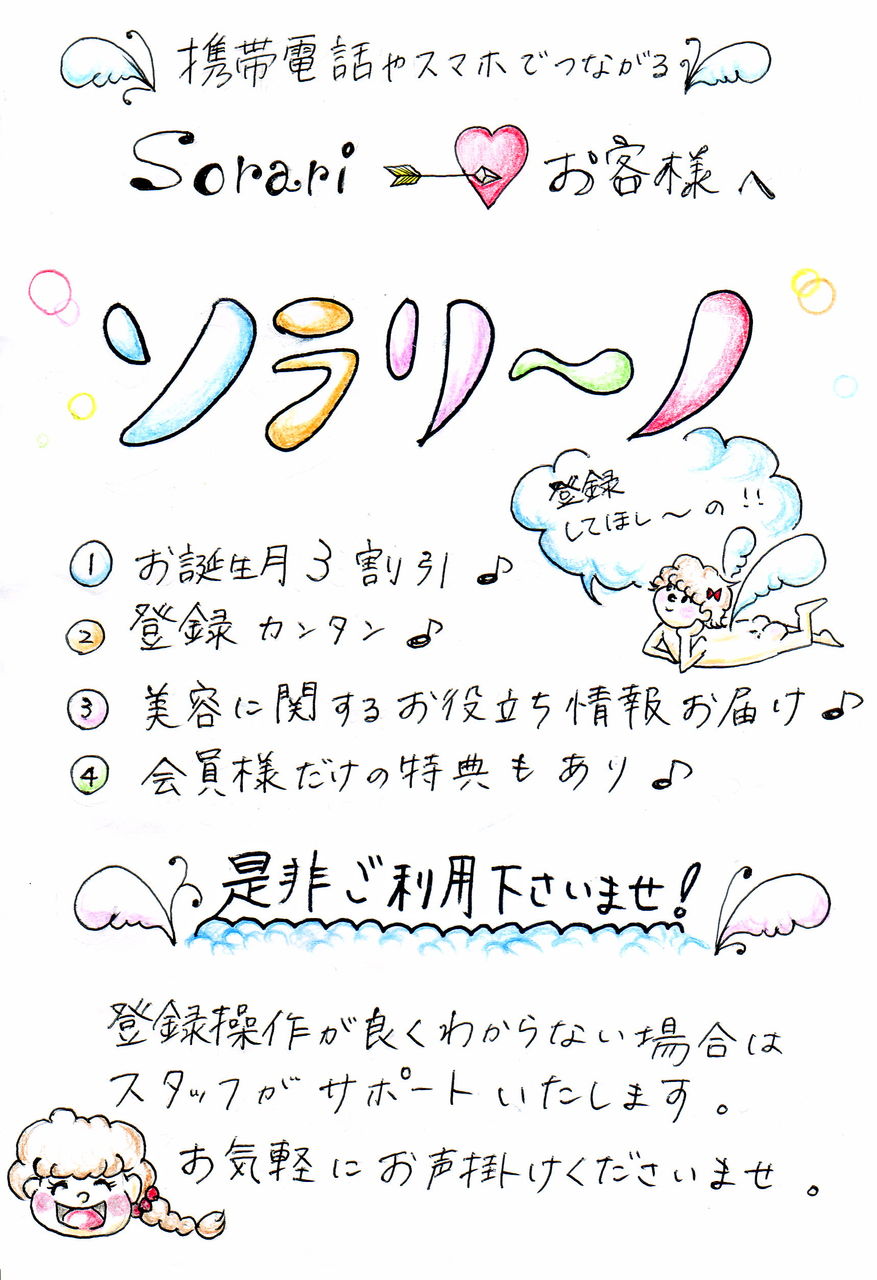 携帯電話やスマホでつながる
Sorari お客様へ
ソラリ〜ノ
登録
してほし〜の!!
① お誕生月3割引♪
② 登録カンタン♪
③ 美容に関するお役立ち情報お届け♪
④ 会員様だけの特典もあり♪
是非ご利用下さいませ!
登録操作が良くわからない場合は
スタッフがサポートいたします。
お気軽にお声掛けくださいませ。